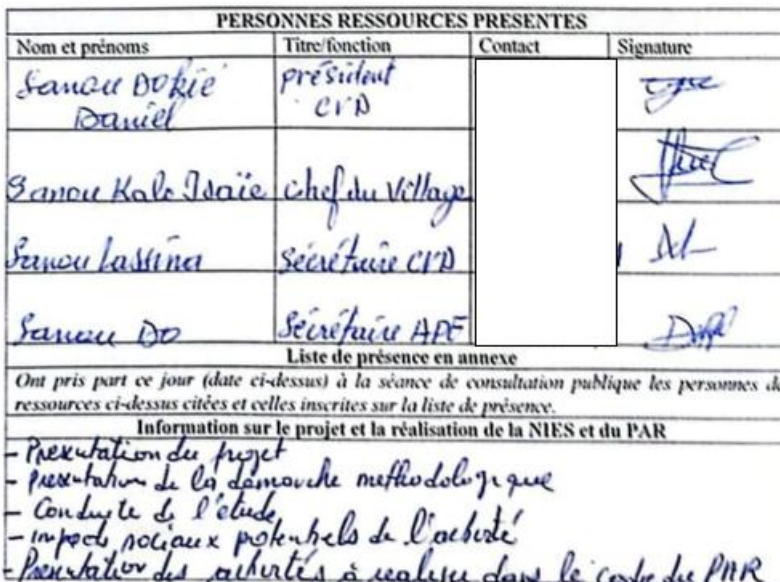 PERSONNES RESSOURCES PRESENTES
Nom et prénoms Titre/fonction Contact Signature
Sanou Dokié président
Daniel CVD
Sanou Kalo Isaïe chef du Village
Sanou Lassina Sécrétaire CVD
Sanou Do Sécrétaire APE
Liste de présence en annexe
Ont pris part ce jour (date ci-dessus) à la séance de consultation publique les personnes de
ressources ci-dessus citées et celles inscrites sur la liste de présence.
Information sur le projet et la réalisation de la NIES et du PAR
- Présentation du projet
- présentation de la démarche méthodologique
- Conduite de l'étude
- impacts sociaux potentiels de l'activité
- Présentation des activités à realiser dans le cadre du PAR